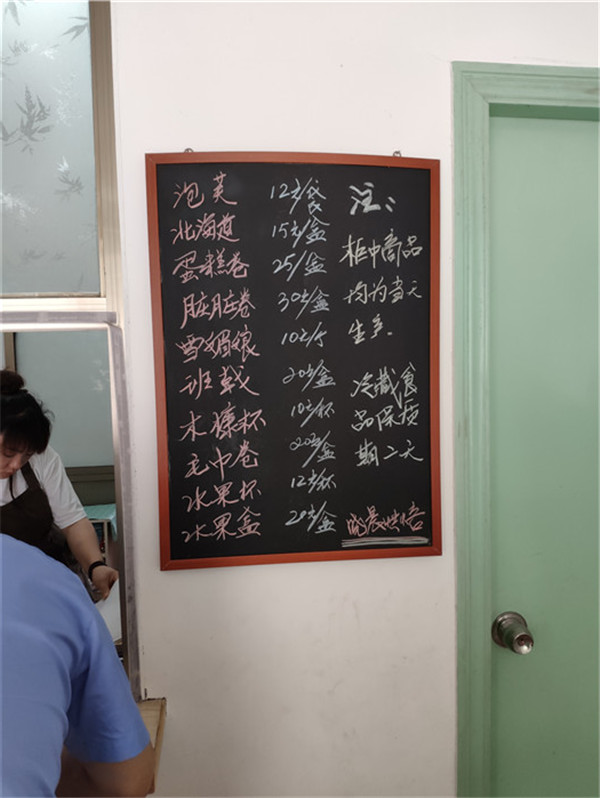 泡芙 12元/袋
北海道 15元/盒
蛋糕卷 25/盒
脏脏卷 30元/盒
雪媚娘 10元/个
班戟 20元/盒
木糠杯 10元/杯
毛巾卷 20元/盒
水果杯 12元/杯
水果盒 20元/盒
注:
柜中商品
均为当天
生产.
冷藏食
品保质
期二天
晓晨烘焙